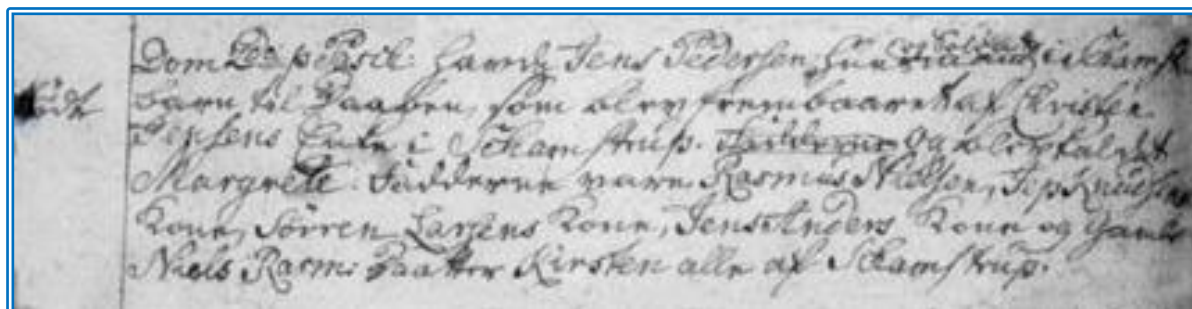 Dom 2da p Pasc: havde Jens Pedersen i Skamst
født
barn til Daaben, som blev frembaaret af Christen
Jensens Enke i Skamstrup. Fadderne og blev kaldet
Margrete. Fadderne vare Rasmus Nielsen, Jep Knudsens
Kone, Sørren Larsens Kone, Jens Anders Kone og Gamle
Niels Rasm: Daatter Kirsten alle af Skamstrup.